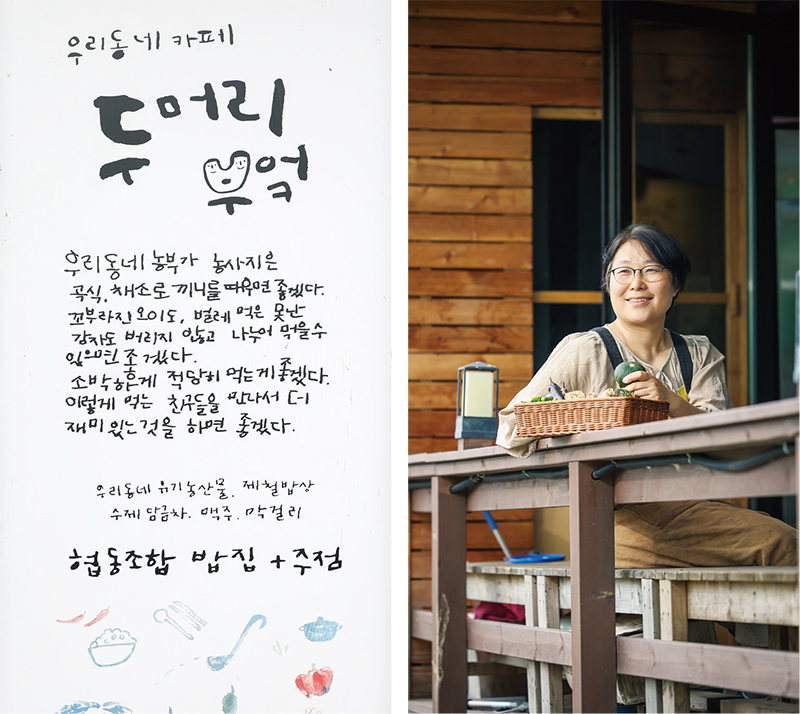 우리동네 카페
두머리
부엌
우리동네 농부가 농사지은
곡식, 채소로 끼니를 때우면 좋겠다.
꼬부라진 오이도, 벌레 먹은 못난
감자도 버리지 않고 나누어 먹을 수
있으면 좋겠다.
소박하게 적당히 먹는게 좋겠다.
이렇게 먹는 친구들을 만나서 더
재미있는것을 하면 좋겠다.
우리동네 유기농산물, 제철밥상
수제 담금차. 맥주. 막걸리
협동조합 밥집 + 주점